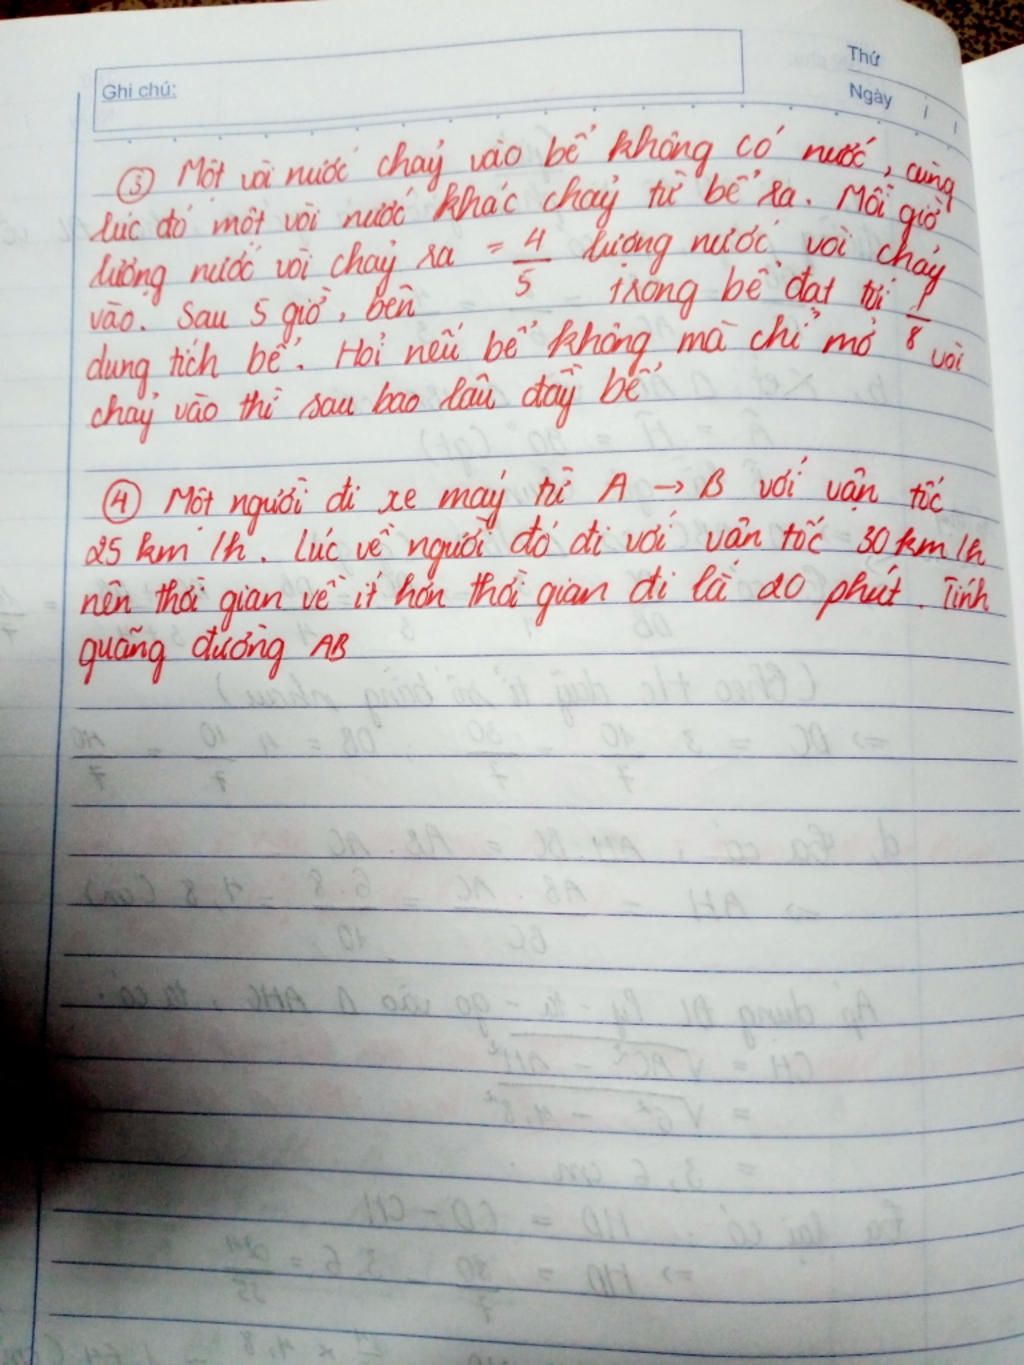 Thứ
Ghi chú:
Ngày / /
③ Một vòi nước chảy vào bể không có nước, cùng
lúc đó một vòi nước khác chảy từ bể ra. Mỗi giờ
lượng nước vòi chảy ra = 4/5 lượng nước vòi chảy
vào. Sau 5 giờ, bên trong bể đạt tới 1/8
dung tích bể. Hỏi nếu bể không mà chỉ mở vòi
chảy vào thì sau bao lâu đầy bể
④ Một người đi xe máy từ A → B với vận tốc
25 km/h. Lúc về người đó đi với vận tốc 30 km/h
nên thời gian về ít hơn thời gian đi là 20 phút. Tính
quãng đường AB